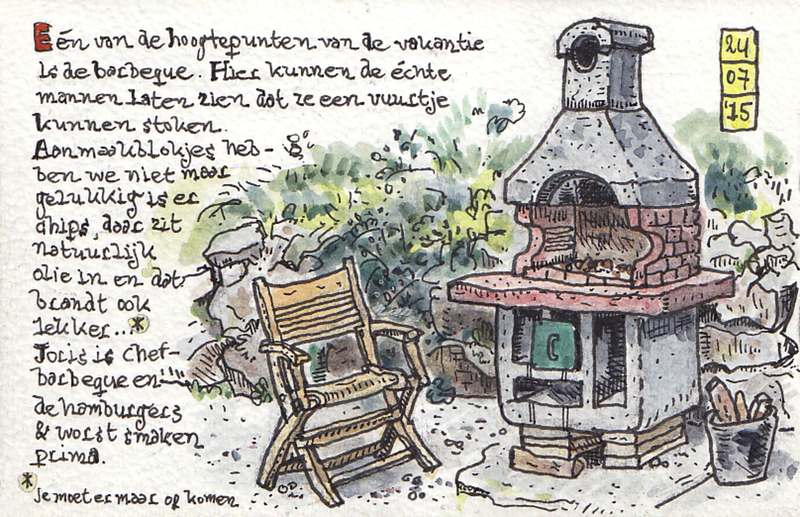 Eén van de hoogtepunten van de vakantie
is de barbeque. Hier kunnen de échte
mannen laten zien dat ze een vuurtje
kunnen stoken.
Aanmaakblokjes heb-
ben we niet maar
gelukkig is er
chips, daar zit
natuurlijk
olie in en dat
brandt ook
lekker..*
Joris is chef-
barbeque en
de hamburgers
& worst smaken
prima.
* je moet er maar op komen
24
07
'15
C